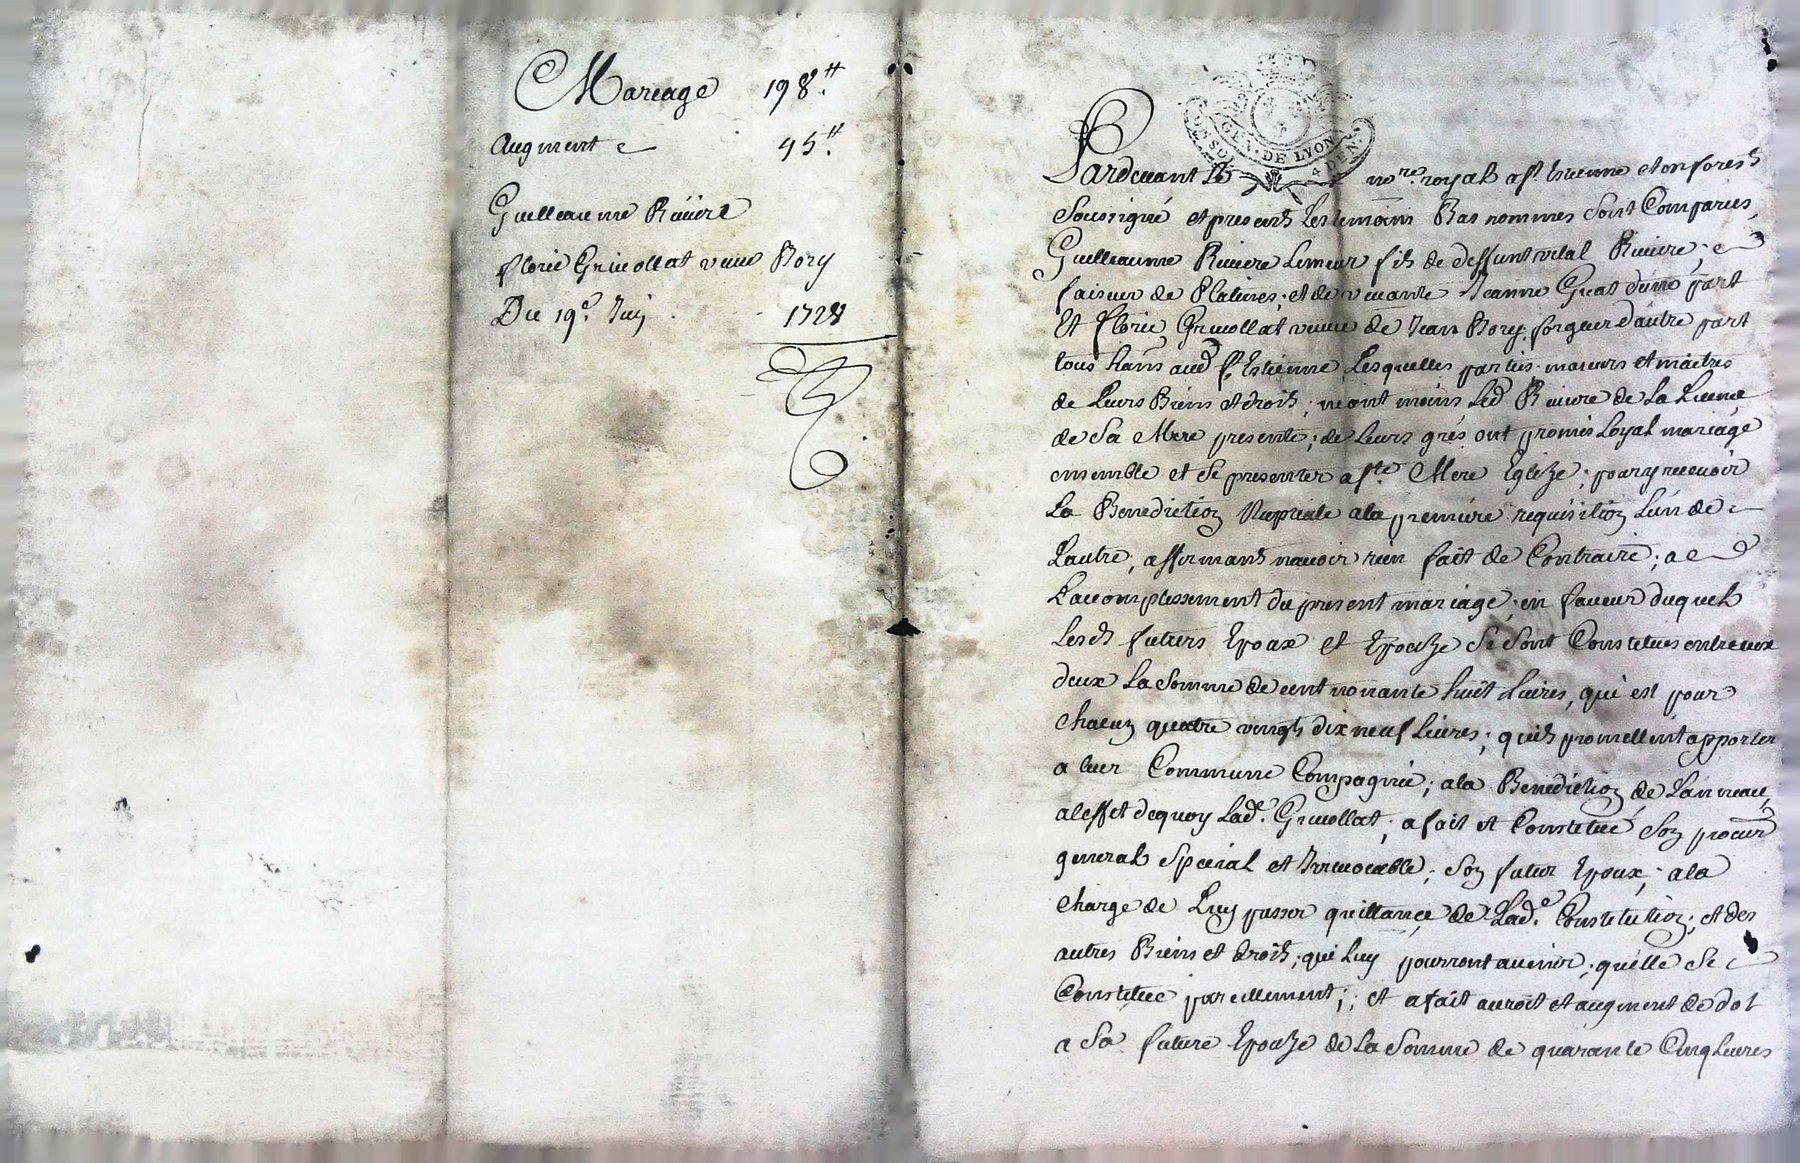 Mariage 198.ᵗᵗ
Augment 45.ᵗᵗ
Guilleaume Riviere
florie Grivollat veuve Bory
Du 19.e Juij 1728
GEN. DE LYON
DEN.
Pardevant Le no.re royal a st. Estienne en forests
Soussigné et presents Les temoins Bas nommes Sont Comparus,
Guilleaume Riviere Limeur fils de deffunt vital Riviere;
faiseur de Platines; et de vivante Jeanne Guat d'une part
Et florie Grivollat veuve de Jean Bory forgeur d'autre part
tous hans aud. st. Estienne, Lesquelles parties majeurs et maitres
de Leurs Biens et droits; neant moins Led. Riviere de La Licence
de Sa Mere presente; de Leurs grés ont promis Loyal mariage
ensemble et Se presenter a ste. Mere Eglize; pour y recevoir
La Benediction Nuptiale a la premiére requisition L'un de
L'autre, affirmants n'avoir rien fait de Contraire; a
L'accomplissement du present mariage; en faveur duquel
Lesds. futurs Epoux et Epouze Se Sont Constitues entre eux
deux La Somme de cent nonante huit Livres, qui est pour
chacun quatre vingts dix neuf Livres; quils promettent apporter
a leur Commune Compagnie; a la Benediction de L'anneau,
a l'effet de quoy Lad.e Grivollat; a fait et Constitué Son procur
general Special et Irrevocable; Son futur Epoux; a la
charge de Luy passer quittance de Lad.e Constitution; et des
autres Biens et droits; qui Luy pourront avenir; quelle Se
Constitue pareillement; et a fait accroit et augment de dot
a Sa future Epouze de La Somme de quarante Cinq Livres